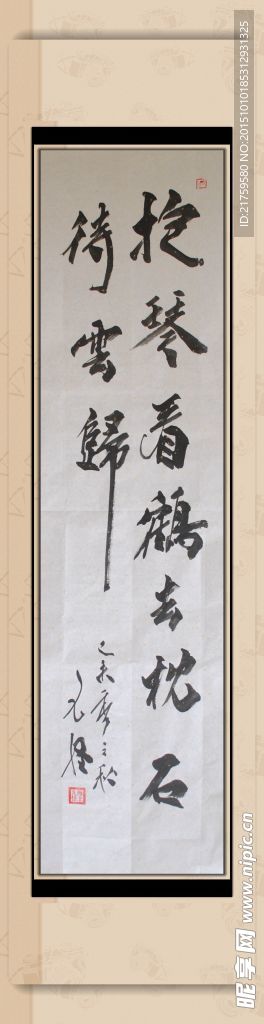 抱琴看鶴去枕石
待雲歸
乙未 之秋
ID:21759580 NO:20151010185312931325
昵享网 www.nipic.cn